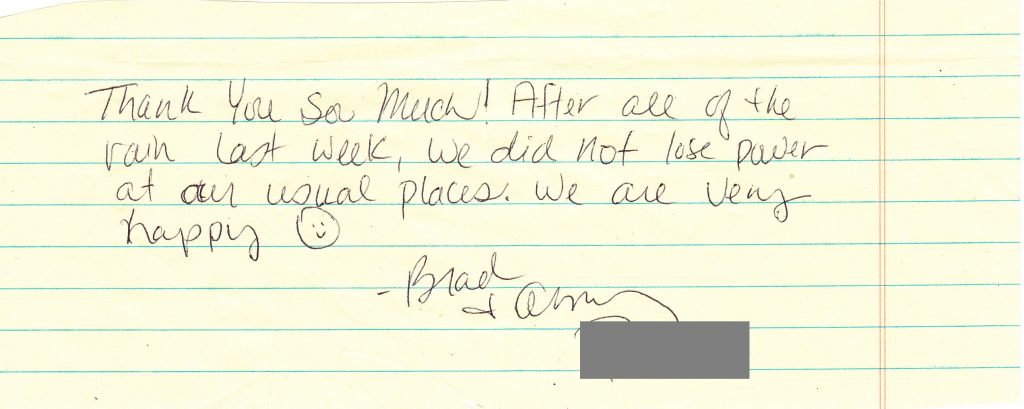 Thank You So Much! After all of the
rain last week, we did not lose power
at our usual places. We are very
happy
- Brad
+